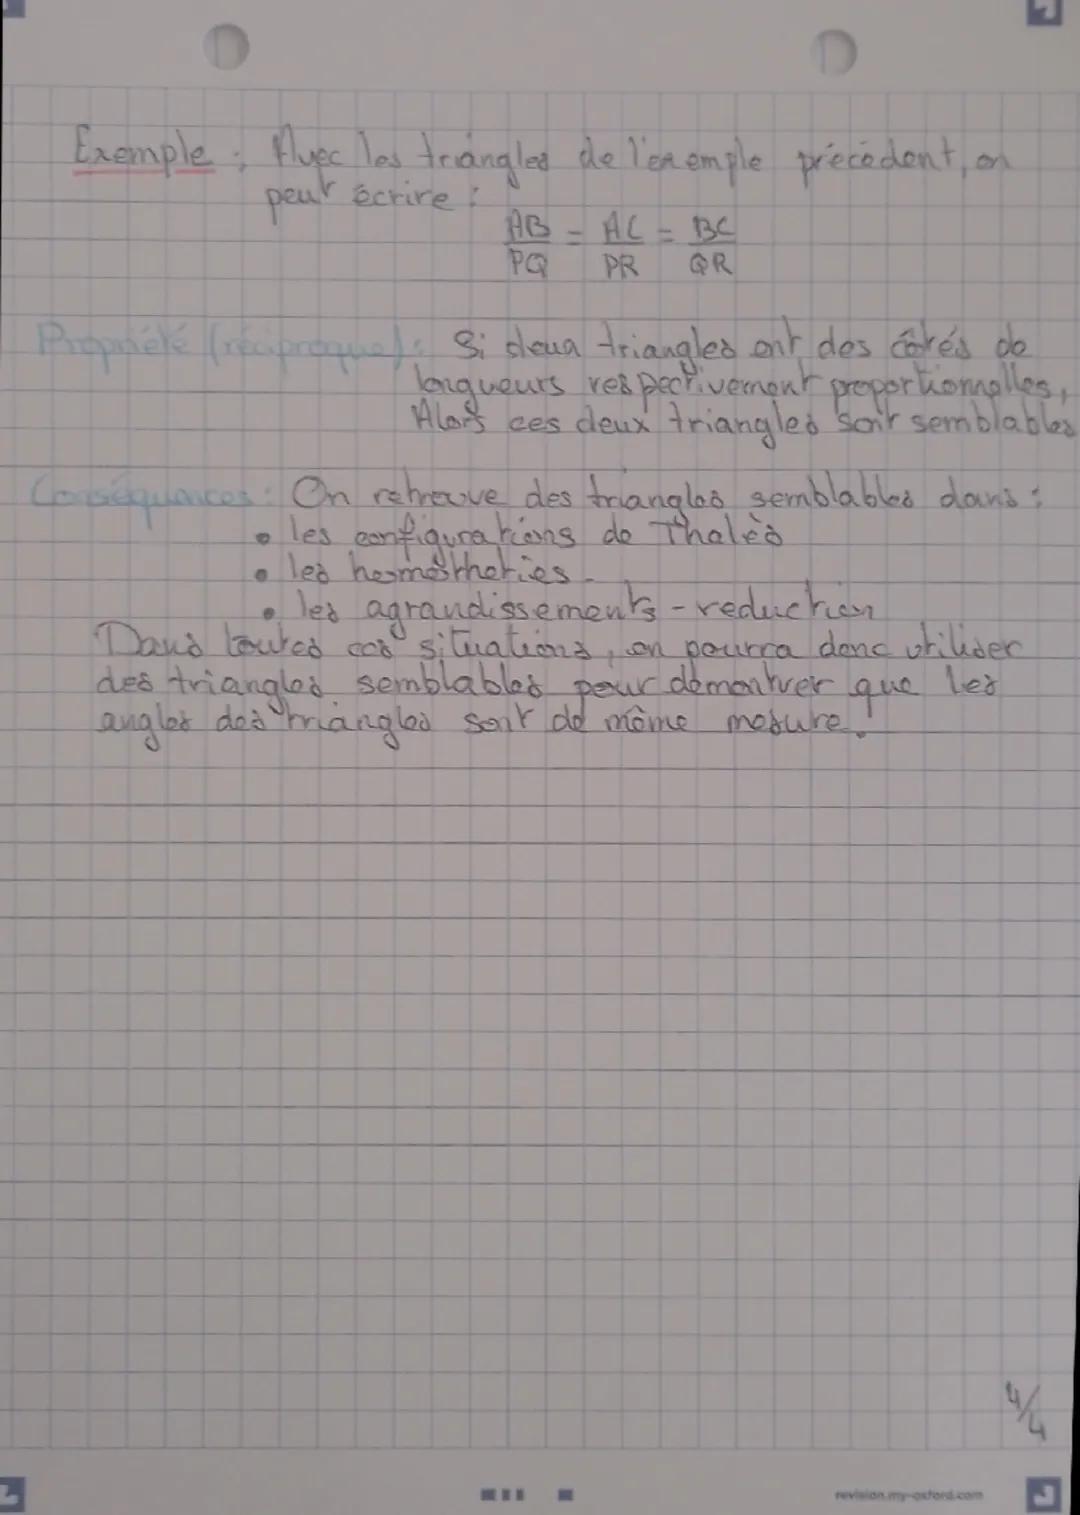 Exemple : Avec les triangles de l'exemple précédent, on
peut écrire :
AB = AC = BC
PQ PR QR
Propriété (réciproque) : Si deux triangles ont des côtés de
longueurs respectivement proportionnelles,
Alors ces deux triangles sont semblables
Conséquences : On retrouve des triangles semblables dans :
• les configurations de Thalès
• les homotheties.
• les agrandissements - reduction
Dans toutes ces situations, on pourra donc utiliser
des triangles semblables pour démontrer que les
angles des triangles sont de même mesure.
4/4
revision.my-oxford.com